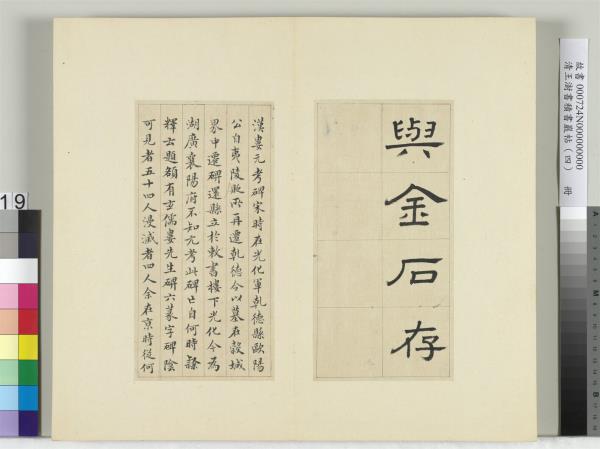 故書 000724N000000000
清王澍書積書巖帖(四) 冊
與金石存
漢婁元考碑宋時在光化軍乾德縣歐陽
公自夷陵貶所再遷乾德令以墓在穀城
界中遷碑還縣立於敕書樓下光化今為
湖廣襄陽府不知元考此碑亡自何時隸
釋云題額有玄儒婁先生碑六篆字碑陰
可見者五十四人漫滅者四人余在京時從何
19